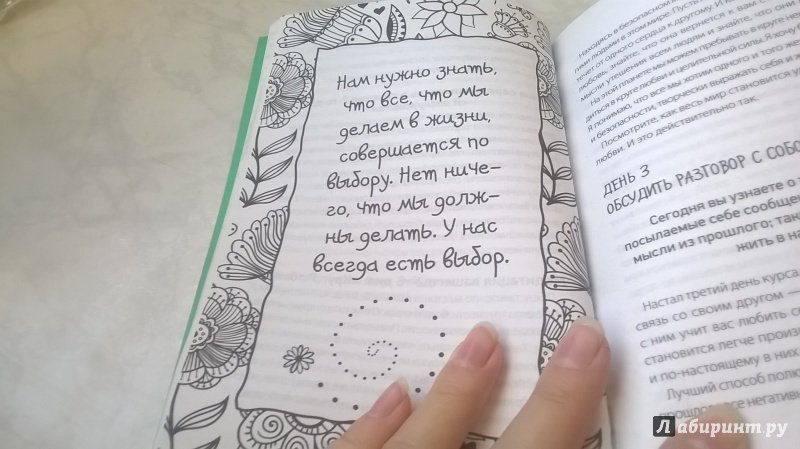 Нам нужно знать,
что все, что мы
делаем в жизни,
совершается по
выбору. Нет ниче-
го, что мы долж-
ны делать. У нас
всегда есть выбор.
Находясь в безопасном
ними людьми в этом мире. Пусть
течет от одного сердца к другому. И
любовь, знайте, что она вернется к вам с
мысли утешения всем людям и знайте, что они
На этой планете мы можем пребывать в круге
диться в круге любви и целительной силы. Я хочу
Я понимаю, что все мы хотим одного и того же
и безопасности, творчески выражать себя и
Посмотрите, как весь мир становится
любви. И это действительно так.
ДЕНЬ 3
ОБСУДИТЬ РАЗГОВОР С СОБО
Сегодня вы узнаете о
посылаемые себе сообщен
мысли из прошлого; так
жить в на
Настал третий день курса
связь со своим другом —
с ним учит вас любить
становится легче
и по-настоящему в них
Лучший способ полю
все негатив
Лабиринт.ру